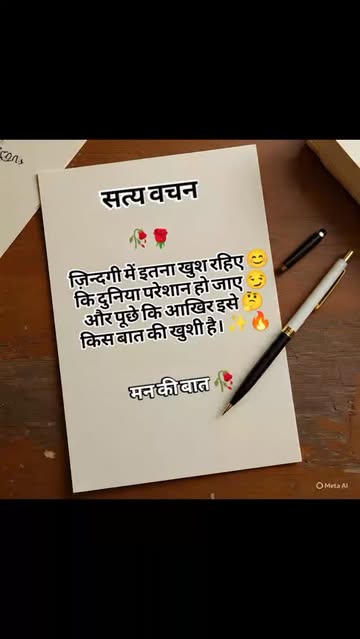 सत्य वचन
🥀🌹
ज़िन्दगी में इतना खुश रहिए 😊
कि दुनिया परेशान हो जाए 😏
और पूछे कि आखिर इसे 🤔
किस बात की खुशी है। ✨🔥
मन की बात 🥀
Meta AI